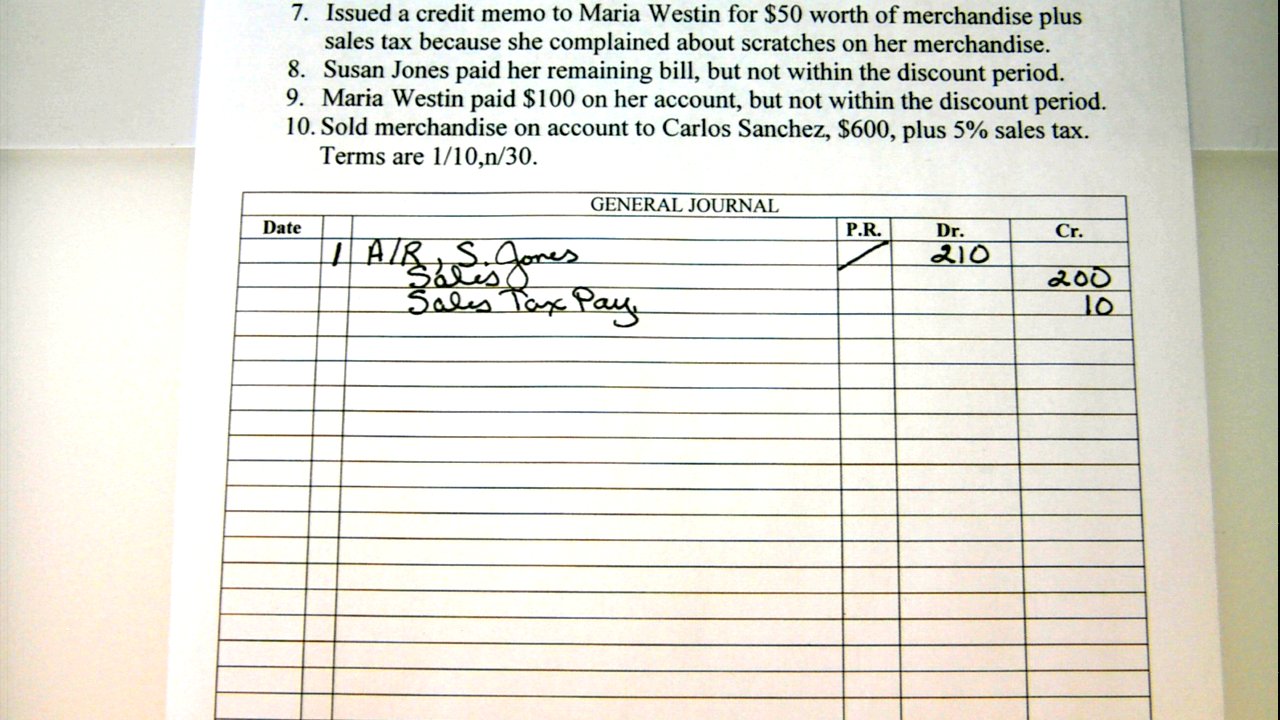 7. Issued a credit memo to Maria Westin for $50 worth of merchandise plus
sales tax because she complained about scratches on her merchandise.
8. Susan Jones paid her remaining bill, but not within the discount period.
9. Maria Westin paid $100 on her account, but not within the discount period.
10. Sold merchandise on account to Carlos Sanchez, $600, plus 5% sales tax.
Terms are 1/10,n/30.
GENERAL JOURNAL
Date P.R. Dr. Cr.
1 A/R, S. Jones 210
Sales 200
Sales Tax Pay. 10